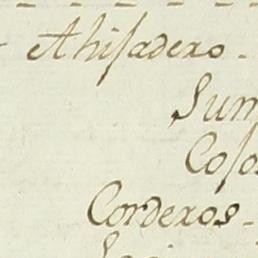 Ahisadero
Sum
Coso
Corderos